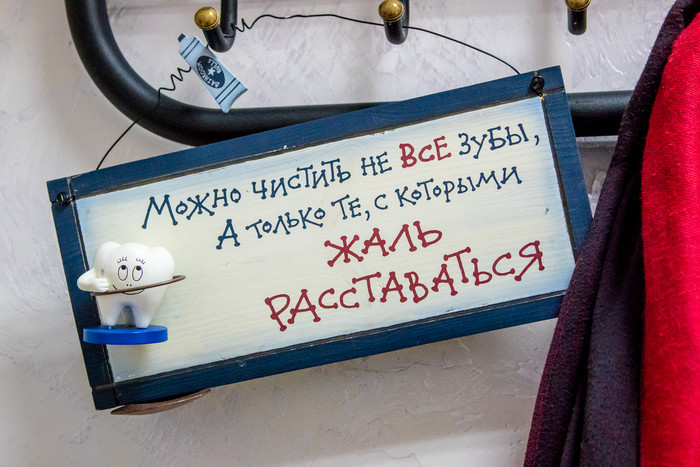 Можно чистить не все зубы,
А только те, с которыми
жаль
расставаться